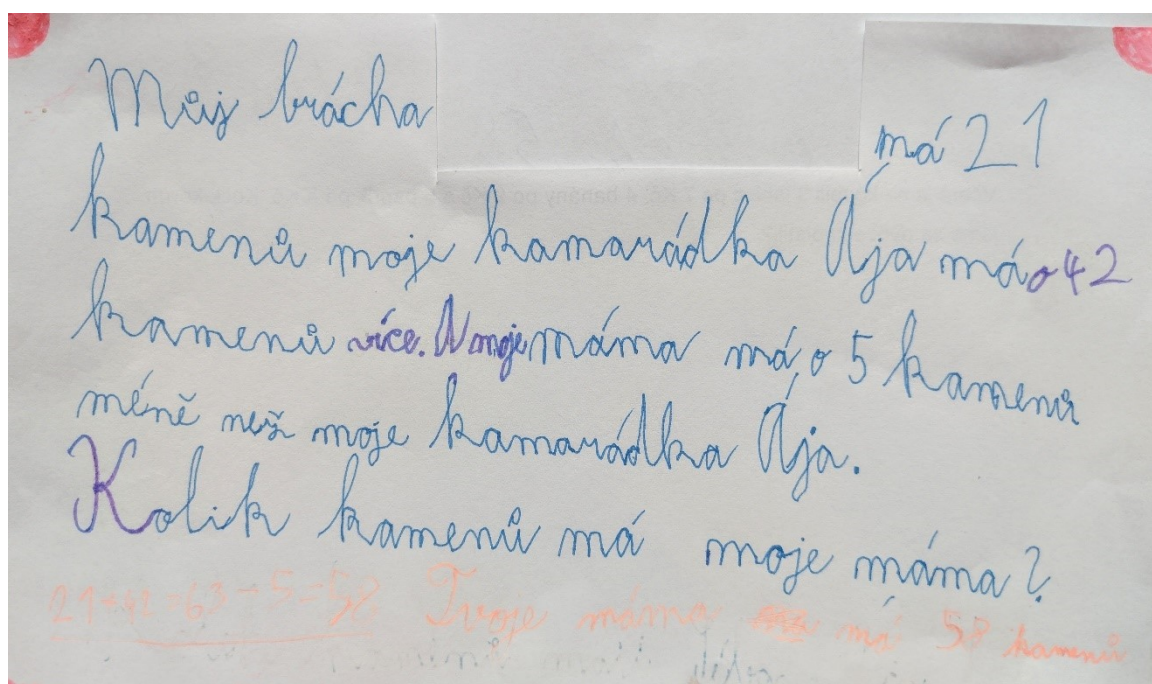 Můj brácha má 21
kamenů moje kamarádka Ája má o 42
kamenů více. A moje máma má o 5 kamenů
méně než moje kamarádka Ája.
Kolik kamenů má moje máma?
21+42=63-5=58 Tvoje máma má 58 kamenů